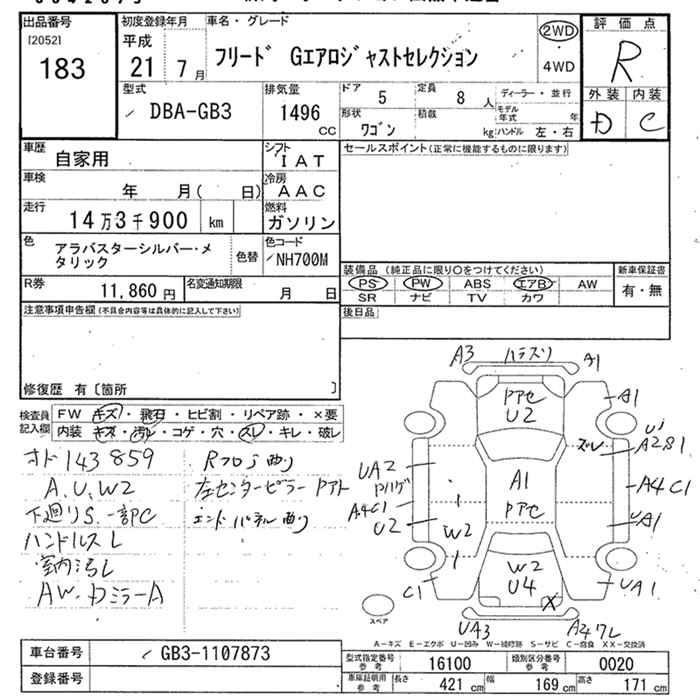 出品番号
[2052]
183
初度登録年月
平成
21 7月
車名・グレード
フリード Gエアロジャストセレクション
2WD
4WD
評価点
R
外装 内装
D C
型式
DBA-GB3
排気量
1496
CC
ドア
5
定員
8人
ディーラー・並行
モデル年式 年
形状
ワゴン
積載
kg
ハンドル 左・右
車歴
自家用
シフト
IAT
セールスポイント(正常に機能するものに限ります)
車検
年 月( 日)
冷房
AAC
走行
14万3千900 km
燃料
ガソリン
色
アラバスターシルバー・メ
タリック
色替
色コード
NH700M
装備品(純正品に限り○をつけてください)
PS PW ABS エアB AW
SR ナビ TV カワ
新車保証書
有・無
R券
11,860円
名変通知期限
月 日
後日品
注意事項申告欄(不具合内容等は具体的に記入して下さい)
修復歴 有〔箇所 〕
検査員
記入欄
FW キズ・飛石・ヒビ割・リペア跡・×要
内装 キズ・汚れ・コゲ・穴・スレ・キレ・破レ
オド143859
A.U.W2
下廻りS.一部C
ハンドルスレ
室内汚レ
AW.DミラーA
Rフロア曲り
左センターピラーPアト
エンドパネル曲り
A3 ハラスリ A1
Pアセ
U2
A1
スレ
A2S1
UA2
A1
Pアセ
A4C1
A4C1
U2
W2
UA1
W2
U4
X
C1
UA1
スペア
UA3
A4ワレ
A−キズ E−エクボ U−凹み W−補修跡 S−サビ C−腐食 XX−交換済
車台番号
GB3-1107873
登録番号
型式指定番号
参考
16100
類別区分番号
参考
0020
車庫証明用
参考
長さ
421 cm
幅
169 cm
高さ
171 cm